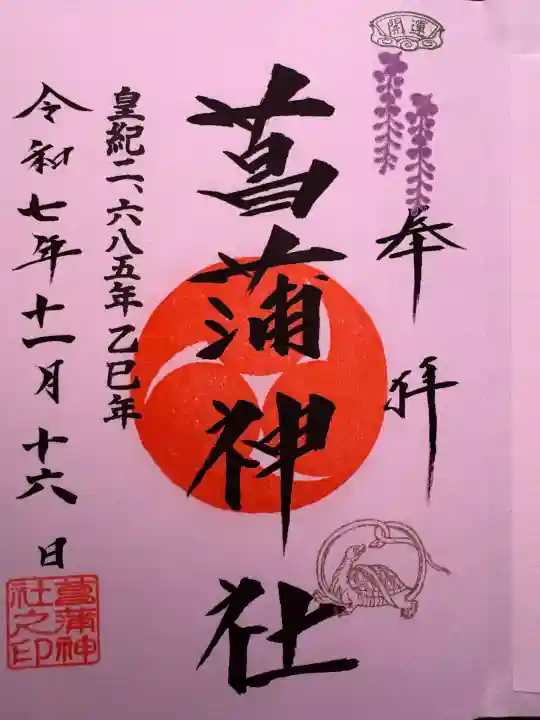 開運
奉拝
菖蒲神社
皇紀二、六八五年乙巳年
令和七年十一月十六日
菖蒲神社之印